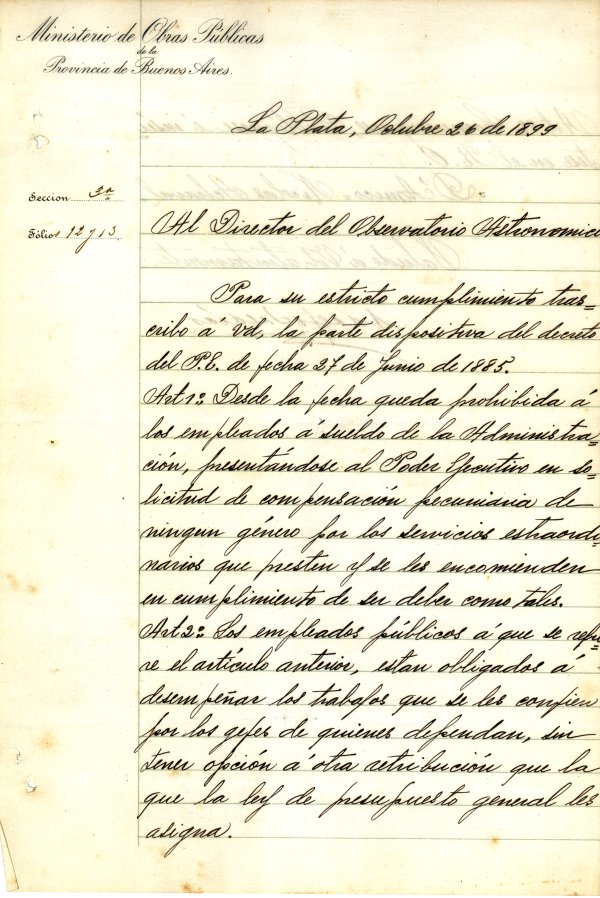 Ministerio de Obras Públicas
de la
Provincia de Buenos Aires.
La Plata, Octubre 26 de 1899
Seccion 3a
Fólios 12 y 13
Al Director del Observatorio Astronomico
Para su estricto cumplimiento tras=
cribo á Vd, la parte dispositiva del decreto
del P.E. de fecha 27 de Junio de 1885.
Art 1º: Desde la fecha queda prohibida á
los empleados á sueldo de la Administra=
ción, presentándose al Poder Ejecutivo en so=
licitud de compensación pecuniaria de
ningun género por los servicios estraordi=
narios que presten y se les encomienden
en cumplimiento de su deber como tales.
Art 2º: Los empleados públicos á que se refie=
re el artículo anterior, estan obligados á
desempeñar los trabajos que se les confien
por los gefes de quienes dependan, sin
tener opción á otra retribución que la
que la ley de presupuesto general les
asigna.